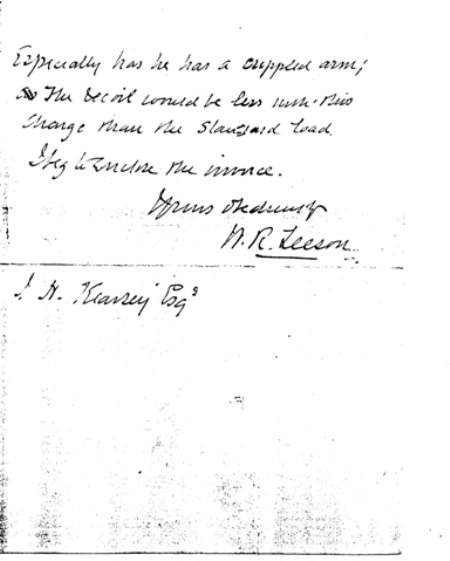 Especially has he has a crippled arm;
The recoil would be less with this
Charge than the Standard load.
I beg to Enclose the invoice.
Yours obediently
W. R. Leeson.
H. Kearsey Esqe